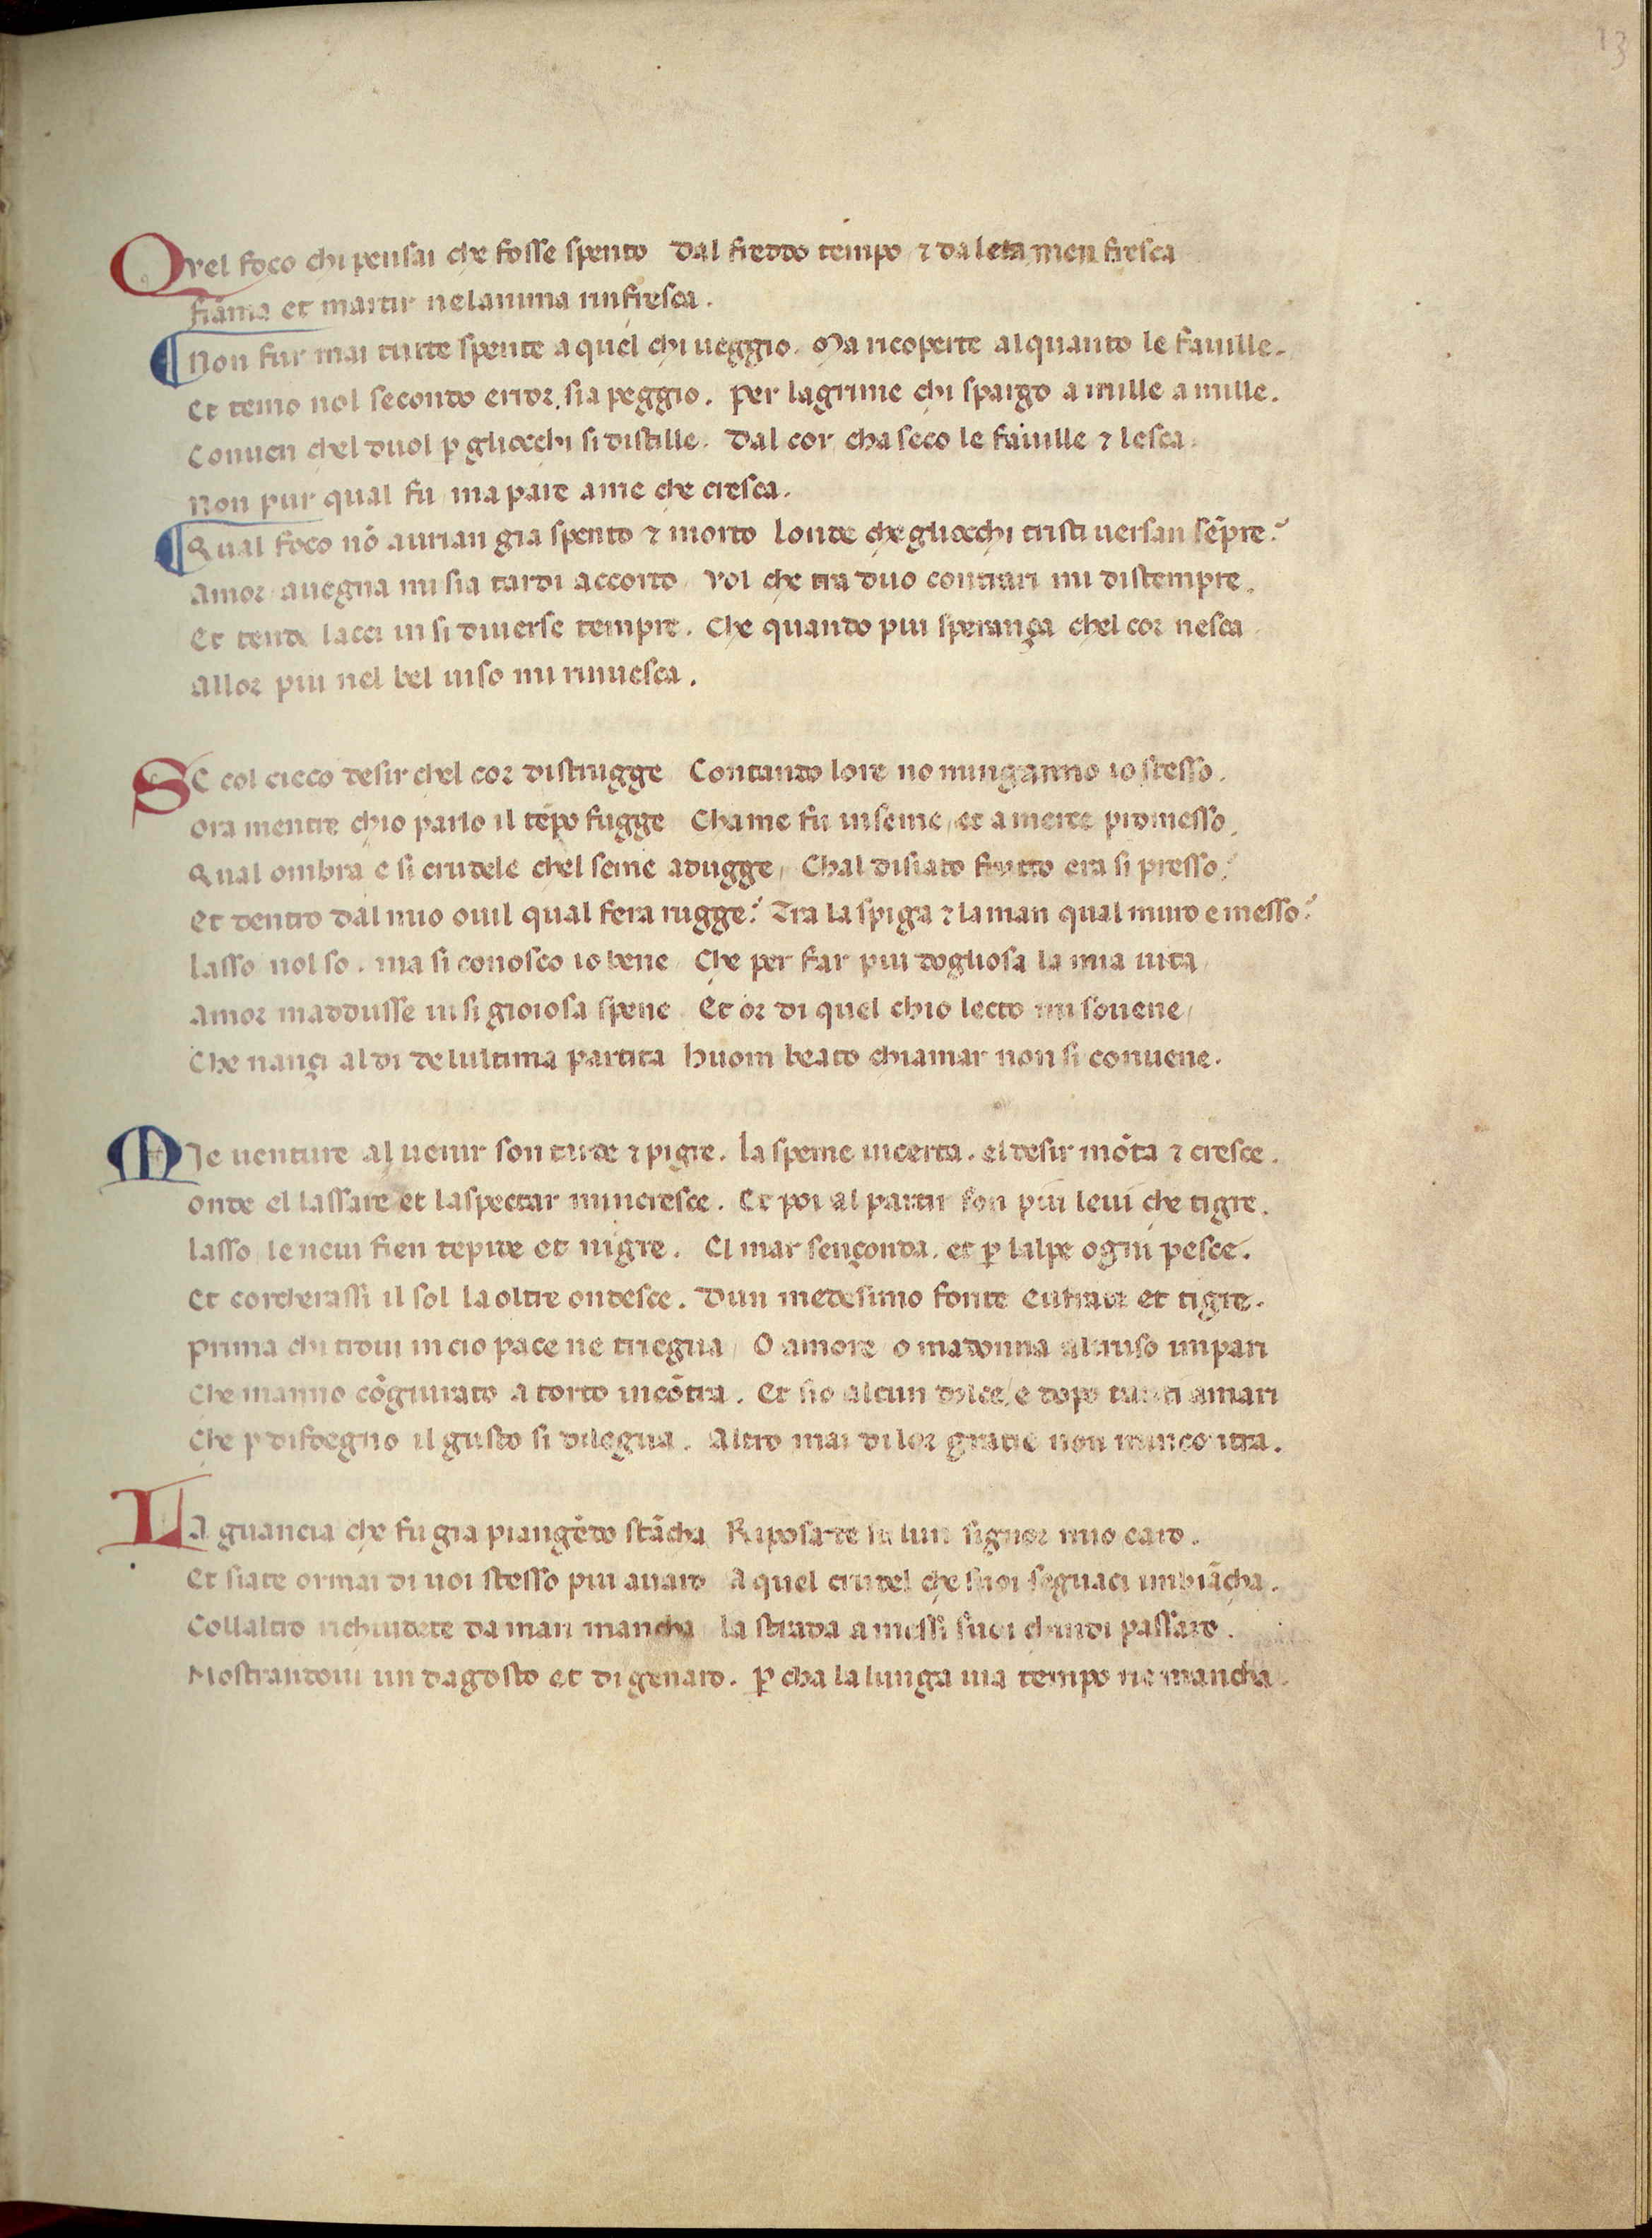 13
Quel foco chi pensai che fosse spento Dal freddo tempo 7 da leta men fresca
fiāma et martir nelanima rinfresca.
Non fur mai tucte spente a quel chi ueggio. Ma ricoperte alquanto le fauille.
Et temo nol secondo error sia peggio. Per lagrime chi spargo a mille a mille.
Conuen chel duol ꝑ gliocchi si distille. Dal cor cha seco le fauille 7 lesca.
Non pur qual fu ma pare ame che cresca.
Qual foco nō aurian gia spento 7 morto Londe che gliocchi tristi uersan sēpre?
Amor auegna mi sia tardi accorto Vol che tra duo contrari mi distempre.
Et tende lacci in si diuerse tempre. Che quando piu sperança chel cor nesca
Allor piu nel bel uiso mi rinuesca.
Se col cieco desir chel cor distrugge Contando lore no minganno io stesso.
Ora mentre chio parlo il tēpo fugge Chame fu inseme, et a merce promesso.
Qual ombra e si crudele chel seme adugge, Chal disiato frutto era si presso?
Et dentro dal mio ouil qual fera rugge? Tra la spiga 7 la man qual muro e messo?
Lasso nol so. ma si conosco io bene Che per far piu dogliosa la mia uita
Amor maddusse in si gioiosa spene Et or di quel chio lecto mi souene,
Che nançi al di de lultima partita huom beato chiamar non si conuene.
Mie uenture al uenir son tarde 7 pigre. La speme incerta. el desir mōta 7 cresce.
Onde el lassare et laspectar mincresce. Et poi al partir son piu leui che tigre.
Lasso le neui fien tepide et nigre. El mar sençonda. et ꝑ lalpe ogni pesce.
Et corcherassi il sol la oltre ondesce. Dun medesimo fonte eufrate et tigre.
Prima chi troui in cio pace ne triegua, O amore o madonna altruso impari
Che manno cōgiurato a torto incōtra. Et sio alcun dolce, e dopo tanti amari
Che ꝑ disdegno il gusto si dilegua. Altro mai di lor gratie non mincontra.
La guancia che fu gia piangēdo stācha Riposate su lun signor mio caro.
Et siate ormai di uoi stesso piu auaro A quel crudel che suoi seguaci imbiācha.
Collaltro richiudete da man mancha La strada a messi suoi chindi passaro.
Mostrandoui un dagosto et di genaro. ꝑ cha la lunga uia tempo ne mancha.